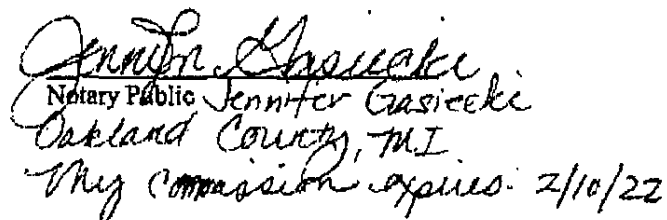 Jennifer Gasiecki
Notary Public Jennifer Gasiecki
Oakland County, MI
My commission expires: 2/10/22